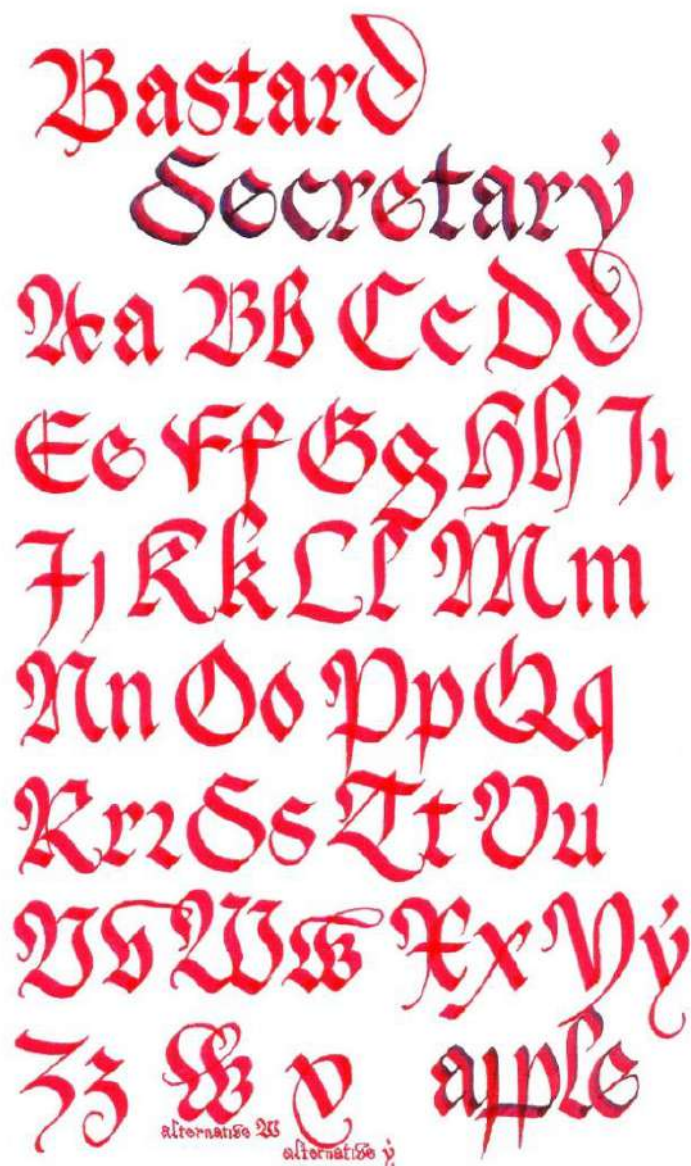 Bastard
Secretary
Aa Bb Cc Dd
Ee Ff Gg Hh Iı
Jȷ Kk Ll Mm
Nn Oo Pp Qq
Rrꝛ Ss Tt Uu
Vv Ww Xx Yẏ
Zz
alternative W
alternative ẏ
apple